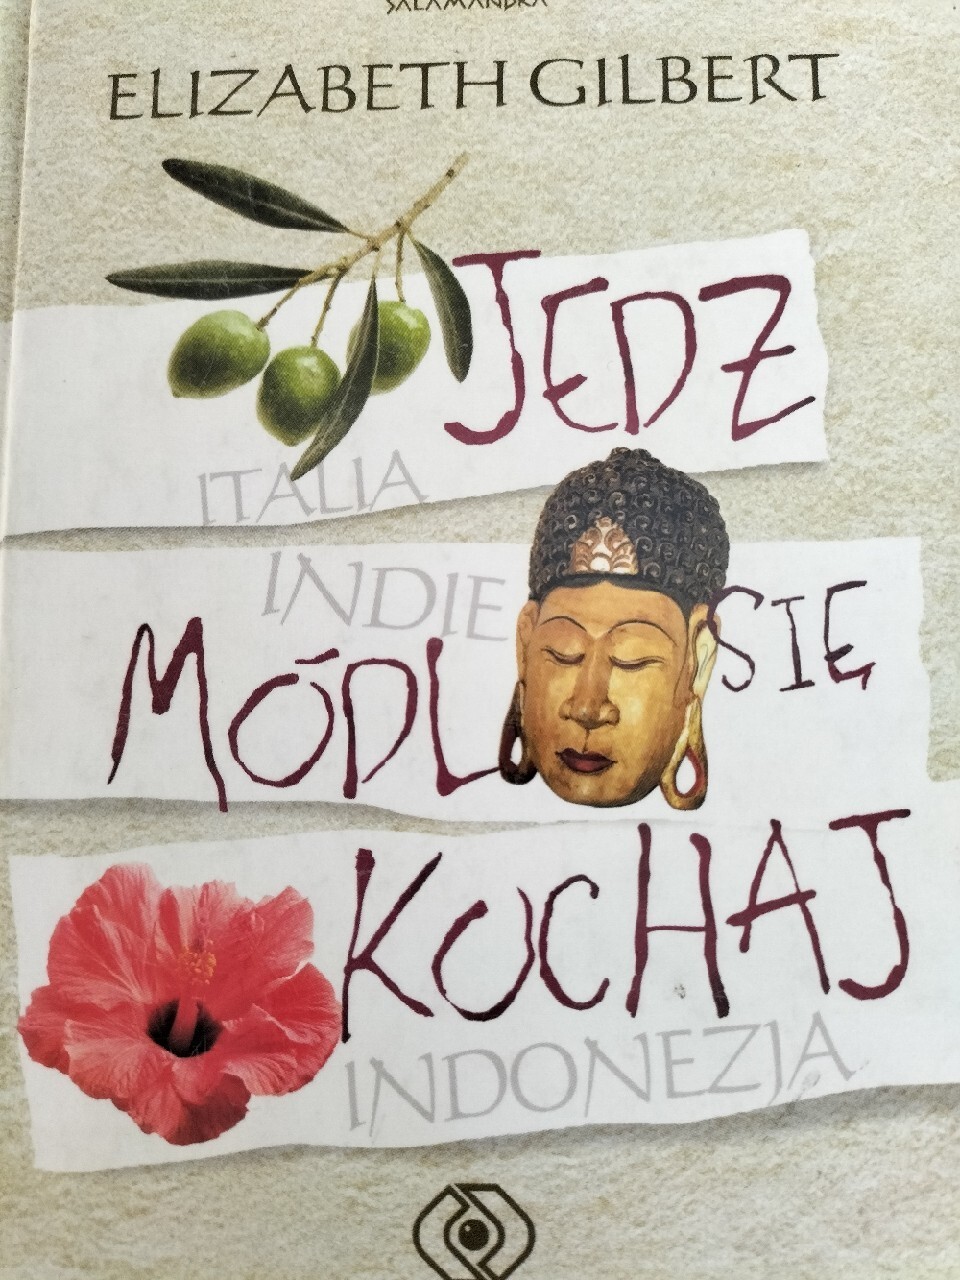 SALAMANDRA
ELIZABETH GILBERT
JEDZ
ITALIA
INDIE
MÓDL SIĘ
KOCHAJ
INDONEZJA